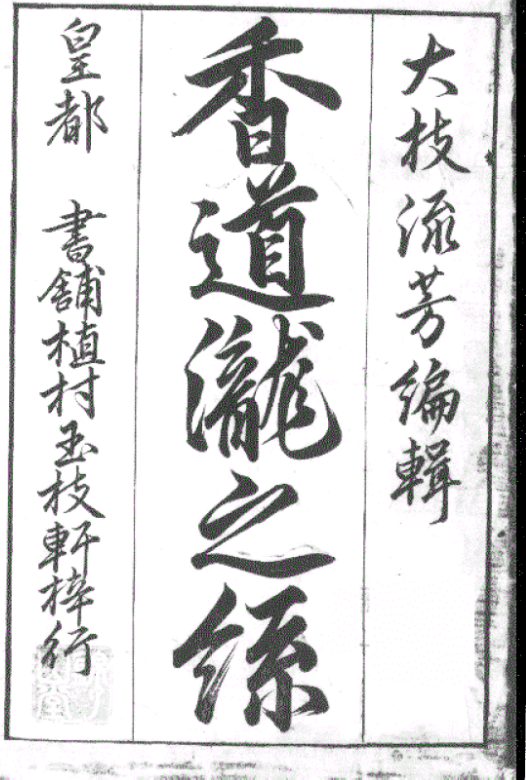 大枝流芳編輯
香道瀧之絲
皇都 書舖植村玉枝軒梓行